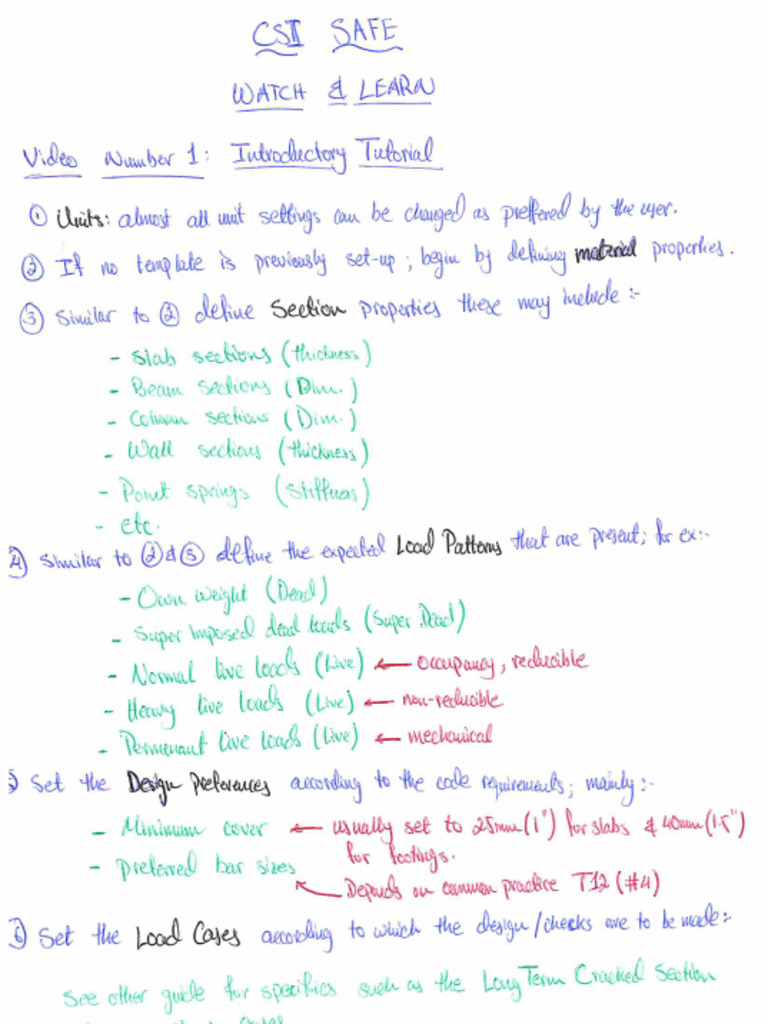 CSI SAFE
WATCH & LEARN
Video Number 1: Introductory Tutorial
① Units: almost all unit settings can be changed as preffered by the user.
② If no template is previously set-up; begin by defining material properties.
③ Similar to ② define Section properties these may include:-
- Slab sections (thickness)
- Beam sections (Dim.)
- Column sections (Dim.)
- Wall sections (thickness)
- Point springs (Stiffness)
- etc.
4) Similar to ② & ③ define the expected Load Patterns that are present; for ex:-
- Own weight (Dead)
- Super Imposed dead loads (Super Dead)
- Normal live loads (Live) ← occupancy, reducible
- Heavy live loads (Live) ← non-reducible
- Permenant live loads (Live) ← mechanical
5 Set the Design Preferences according to the code requirements; mainly:-
- Minimum cover ← usually set to 25mm (1") for slabs & 40mm (1.5")
for footings.
- preferred bar sizes
Depends on common practice T12 (#4)
6) Set the Load Cases according to which the design/checks are to be made:-
See other guide for specifics such as the Long Term Cracked Section